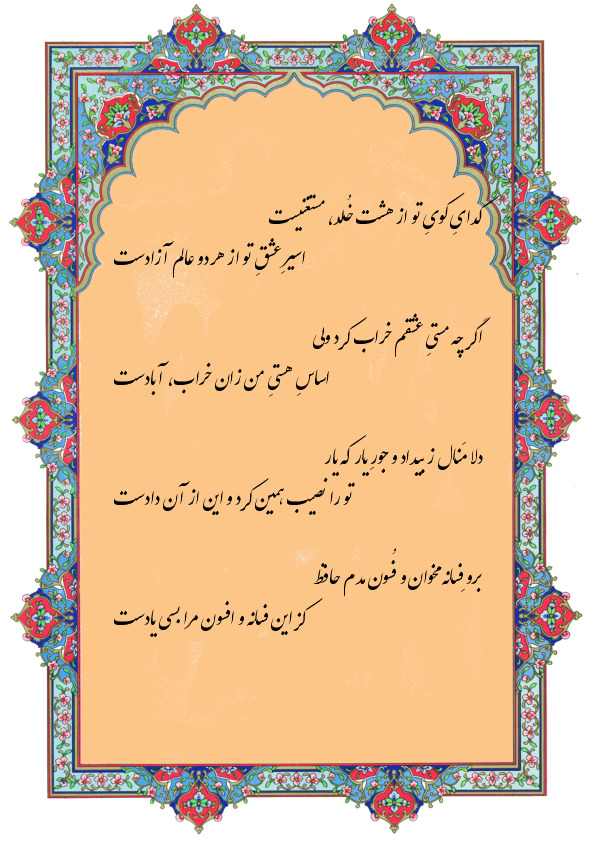 گدایِ کویِ تو از هشت خُلد، مستغنیست
اسیرِ عشقِ تو از هر دو عالم آزادست
اگر چه مستیِ عشقم خراب کرد ولی
اساسِ هستیِ من زان خراب، آبادست
دلا مَنال ز بیداد و جورِ یار که یار
تو را نصیب همین کرد و این از آن دادست
برو فِسانه مخوان و فُسون مدم حافظ
کز این فسانه و افسون مرا بسی یادست